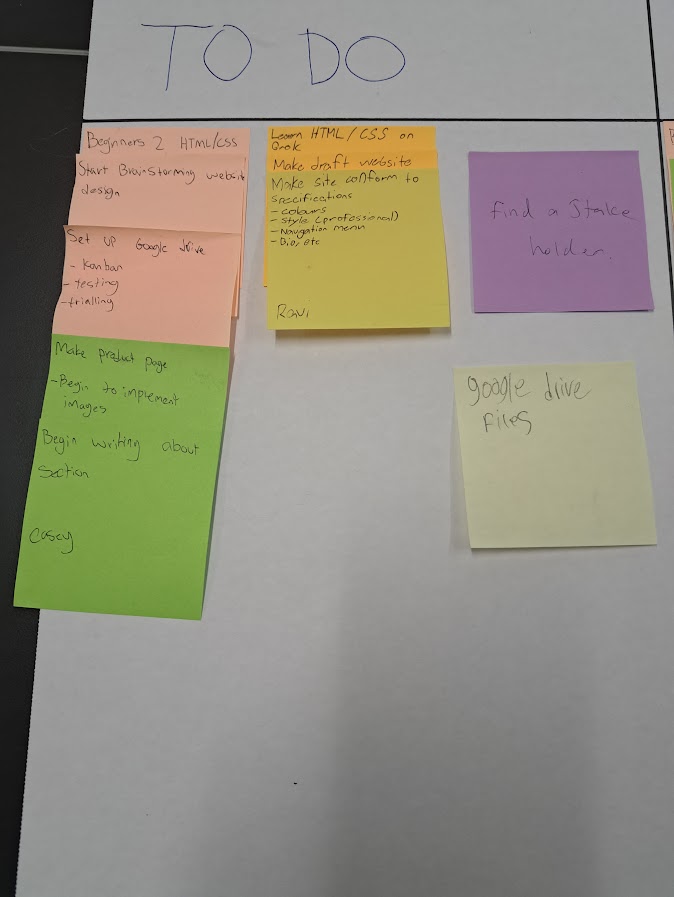 TO DO
Beginners 2 HTML/CSS
Start Brainstorming website
design
Set up Google drive
- Kanban
- testing
- trialling
Make product page
- Begin to implement
images
Begin writing about
section
Casey
Learn HTML/CSS on
Grok
Make draft website
Make site conform to
specifications
- colours
- Style (professional)
- Navigation menu
- Bio, etc
Ravi
find a Stake
holder.
google drive
files